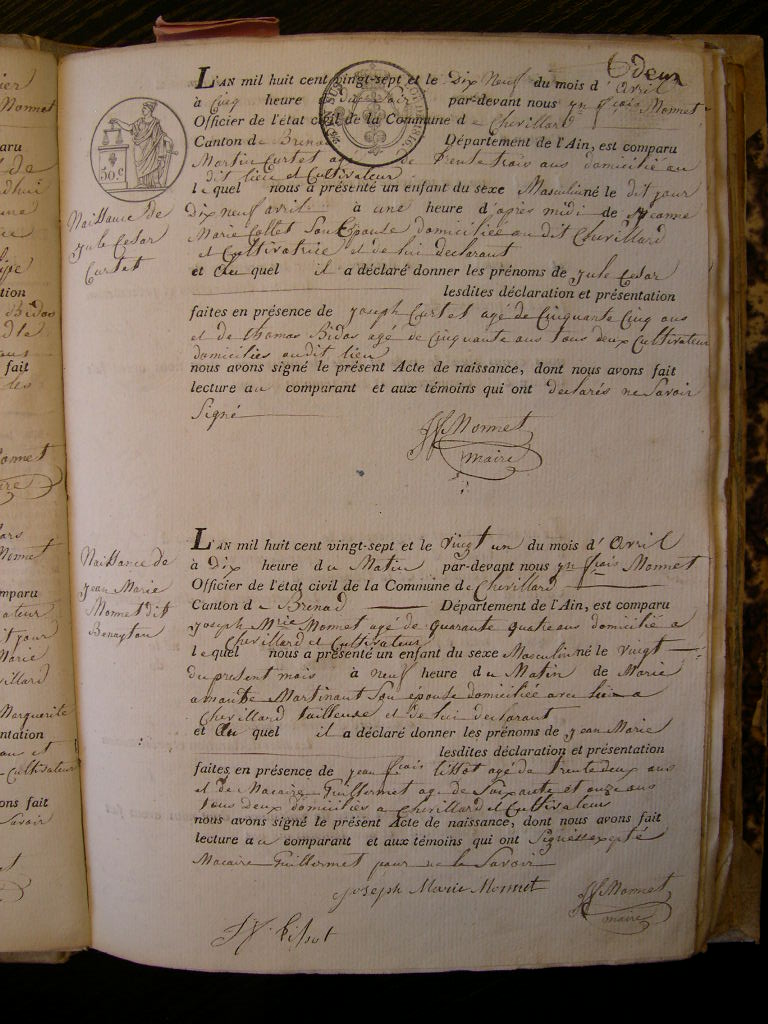 6 deux
L'AN mil huit cent vingt-sept et le Dix Neuf du mois d'avril
à Cinq heure du Soir par-devant nous jn fçois Monnet
Officier de l'état civil de la Commune de Chevillard
Canton de Brenod Département de l'Ain, est comparu
Martin Curtet agé de Trente trois ans domicilié au
dit lieu et Cultivateur
lequel nous a présenté un enfant du sexe Masculin né le dit jour
Dix neuf avril à une heure d'après midi de Jeanne
Marie Collet Son Epouse domiciliée au dit Chevillard
et Cultivatrice et de lui déclarant
et au quel il a déclaré donner les prénoms de jule Cesar
lesdites déclaration et présentation
faites en présence de joseph Curtet agé de Cinquante Cinq ans
et de thomas Bidos agé de Cinquante ans tous deux Cultivateur
domiciliés audit lieu
nous avons signé le présent Acte de naissance, dont nous avons fait
lecture au comparant et aux témoins qui ont declarés ne Savoir
Signé
Monnet
maire
50c
Naissance de
jule Cesar
Curtet
L'AN mil huit cent vingt-sept et le vingt un du mois d'avril
à Dix heure du Matin par-devant nous jn fçois Monnet
Officier de l'état civil de la Commune de Chevillard
Canton de Brenod Département de l'Ain, est comparu
joseph Mrie Monnet agé de quarante quatre ans domicilié a
Chevillard et Cultivateur
lequel nous a présenté un enfant du sexe Masculin né le vingt
du present mois à neuf heure du Matin de Marie
Martinant Son epouse domiciliée avec lui a
Chevillard tailleuse et de lui declarant
et au quel il a déclaré donner les prénoms de jean Marie
lesdites déclaration et présentation
faites en présence de jean fçois tissot agé de trente deux ans
et de Macaire Guillermet agé de Soixante et onze ans
tous deux domiciliés a Chevillard et Cultivateurs
nous avons signé le présent Acte de naissance, dont nous avons fait
lecture au comparant et aux témoins qui ont Signés excepté
Macaire Guillermet pour ne le Savoir
joseph Marie Monnet
Monnet
maire
Naissance de
jean Marie
Monnet dit
Benayton